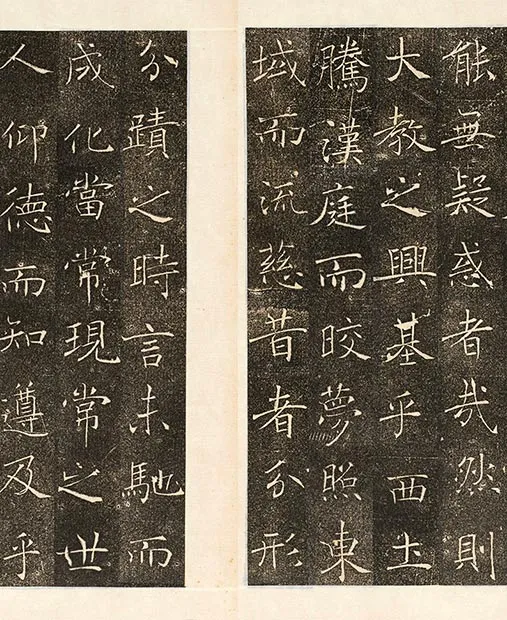 能無疑惑者哉然則
大教之興基乎西土
騰漢庭而皎夢照東
域而流慈昔者分形
分蹟之時言未馳而
成化當常現常之世
人仰德而知遵及乎